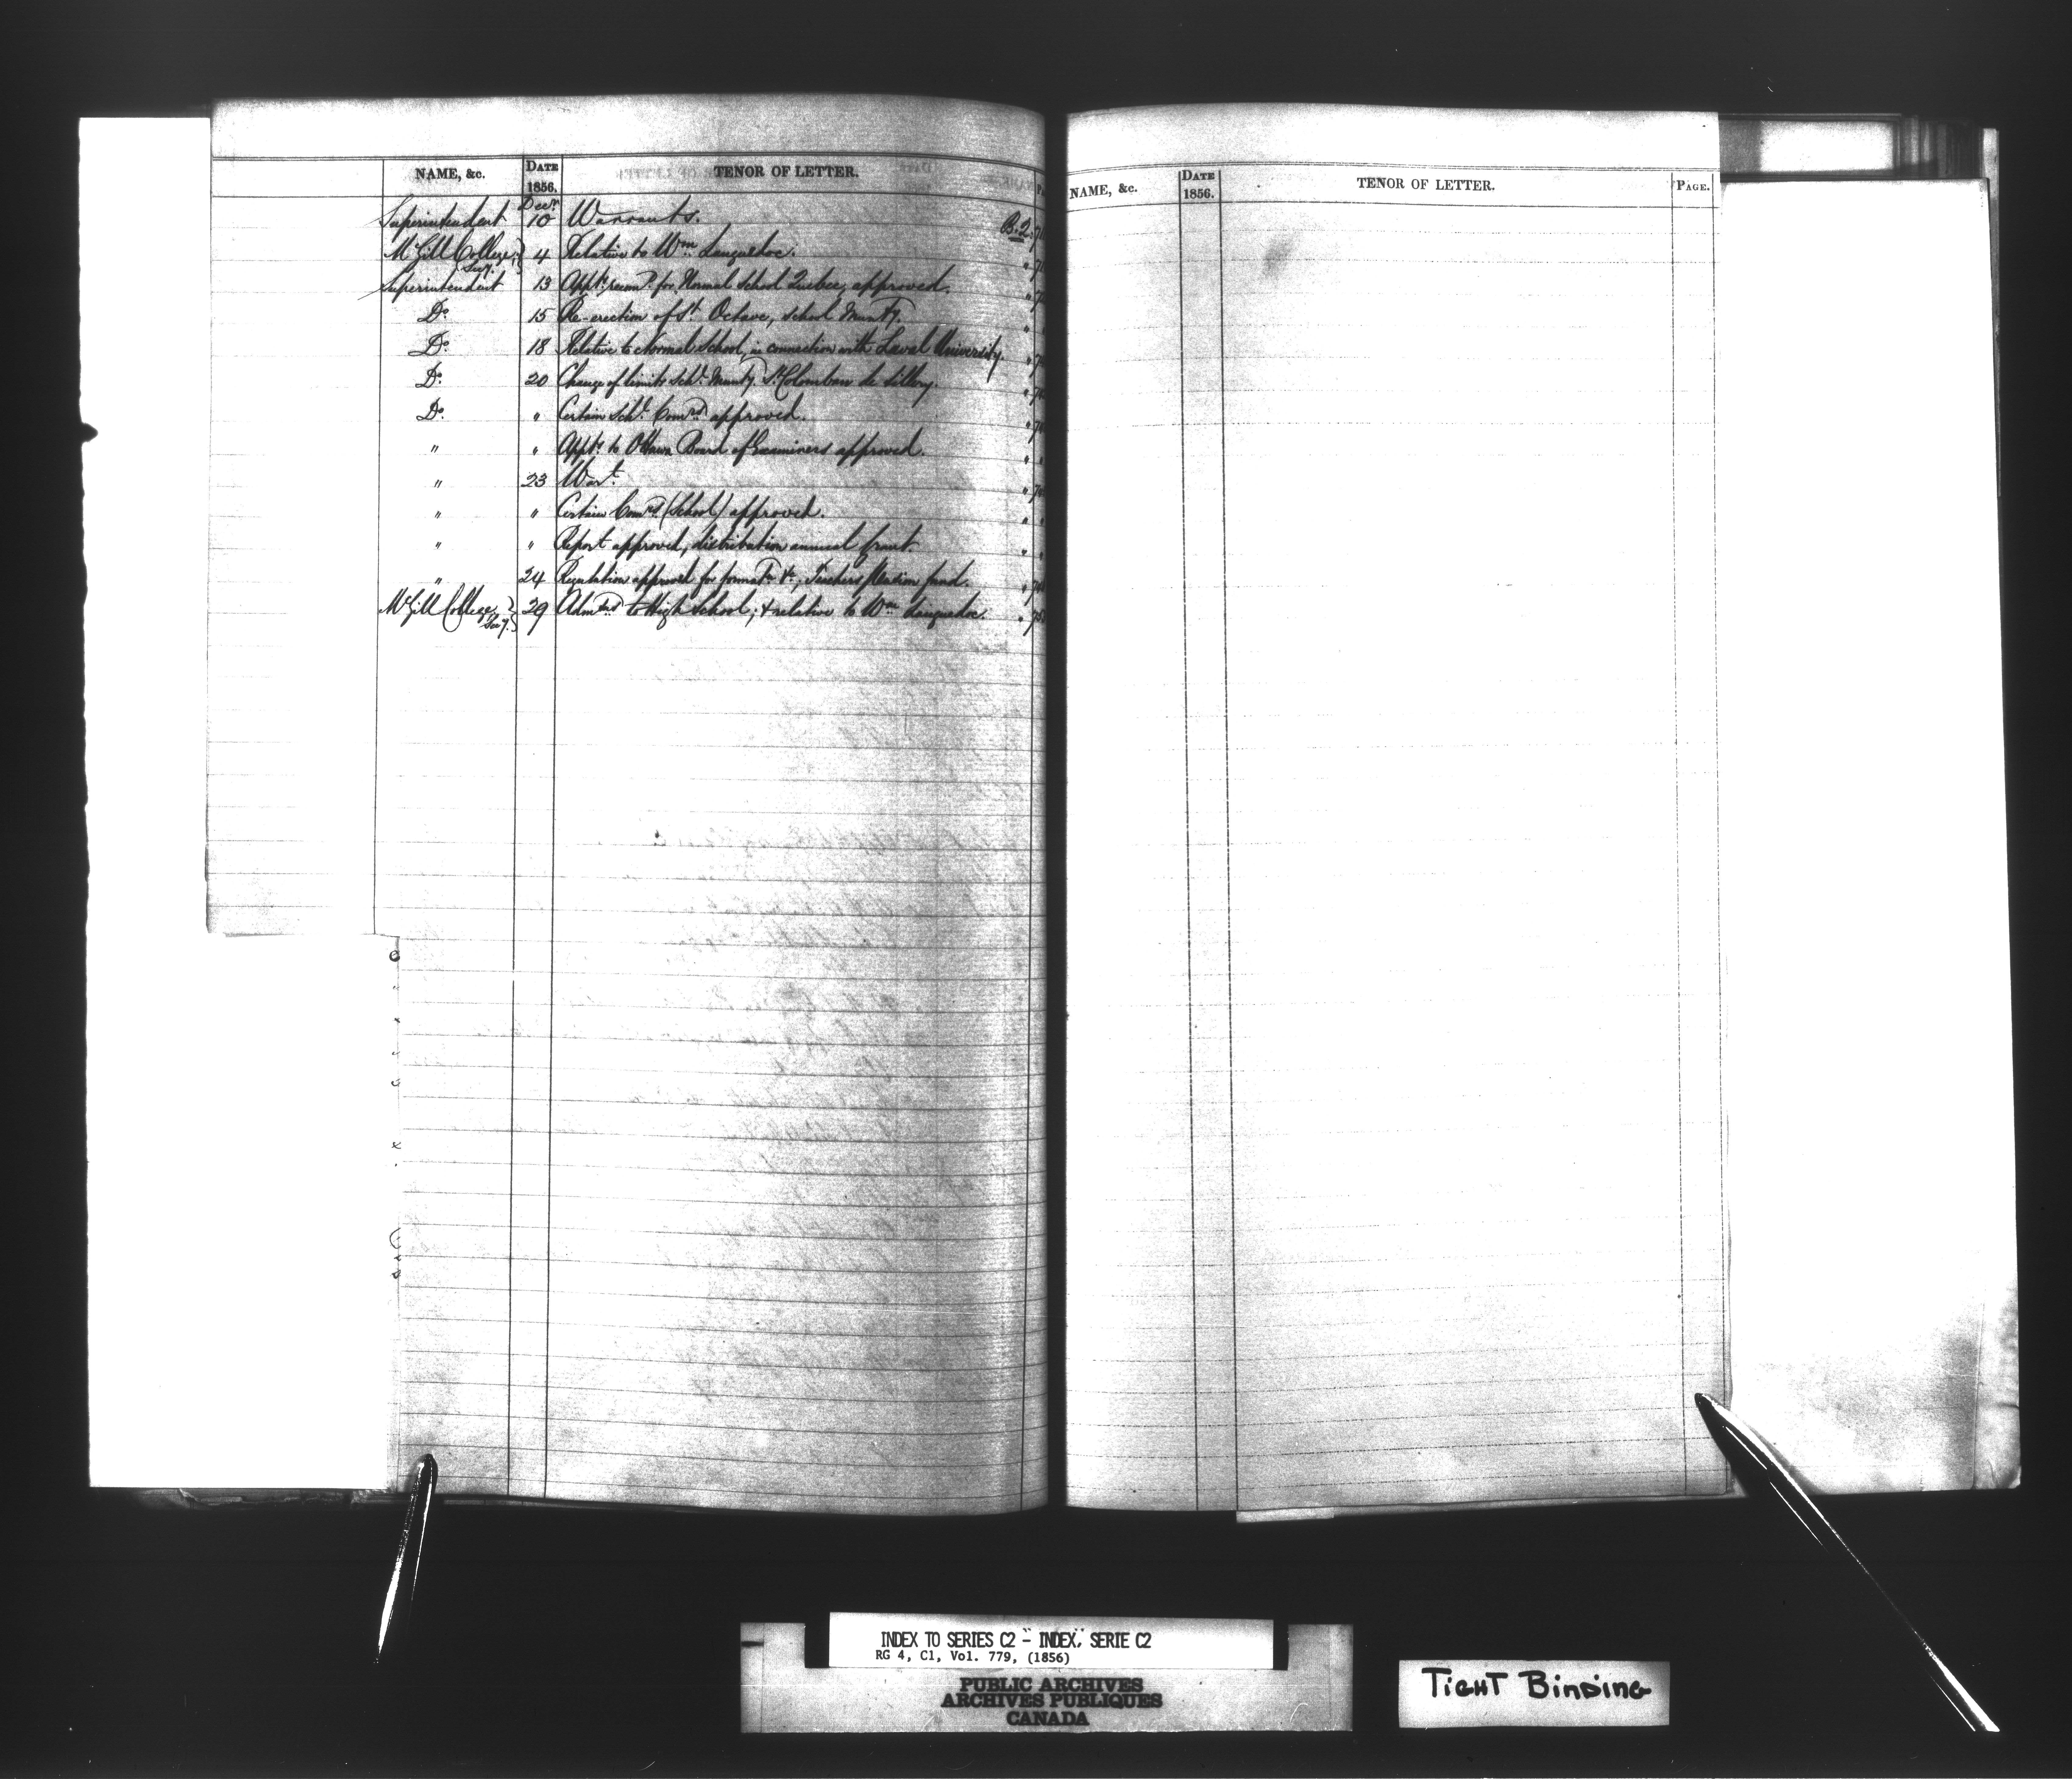 NAME, &c. DATE 1856. TENOR OF LETTER.
Superintendent Decr. 10 Warrants. B.2.
McGill College, Secy. 4 Relative to Wm. Languedoc. "
Superintendent 13 Appts. recomd. for Normal School Quebec, approved. "
Do. 15 Re-erection of St. Octave, School Munty. "
Do. 18 Relative to Normal School, in connection with Laval University. "
Do. 20 Change of limits Schl. Munty. St. Colomban de Sillery. "
Do. " Certain Schl. Comrs. approved. "
" " Appts. to Ottawa Board of Examiners approved. " "
" 23 Wart. "
" " Certain Comrs. (School) approved. " "
" " Report approved, distribution annual grant. " "
" 24 Regulation approved for formatn. &c., Teachers Pension fund. "
McGill College, Secy. 29 Admns. to High School; & relative to Wm. Languedoc. "
NAME, &c. DATE 1856. TENOR OF LETTER. PAGE.
INDEX TO SERIES C2 - INDEX, SERIE C2
RG 4, C1, Vol. 779, (1856)
PUBLIC ARCHIVES
ARCHIVES PUBLIQUES
CANADA
TIGHT BINDING